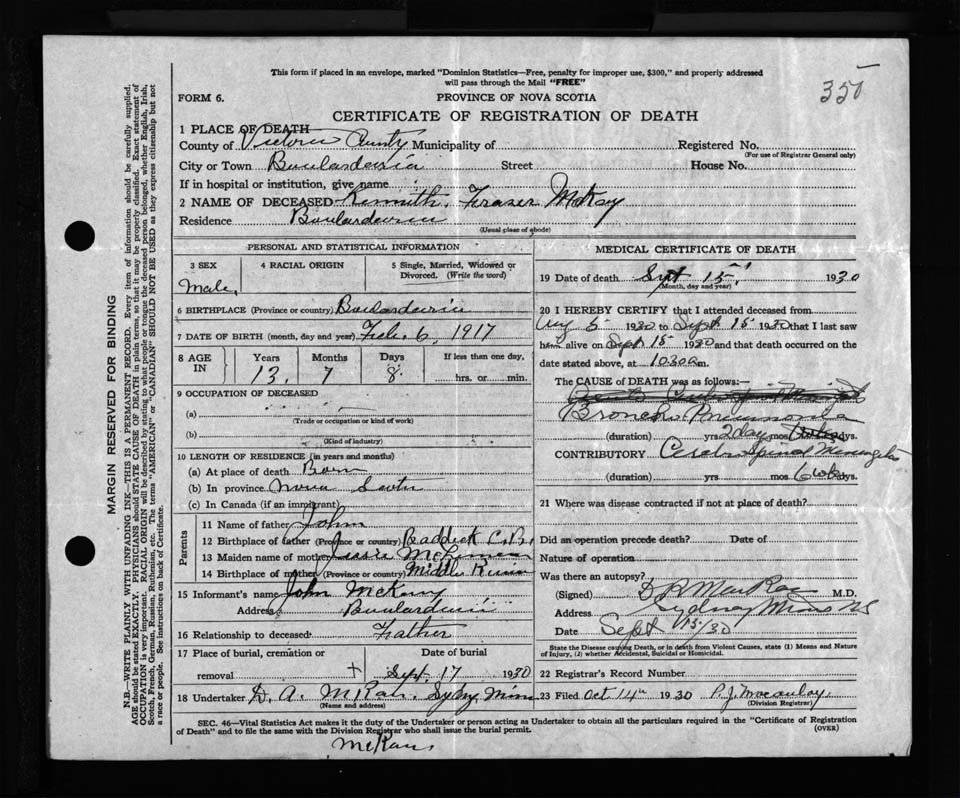 355
This form if placed in an envelope, marked "Dominion Statistics—Free, penalty for improper use, $300," and properly addressed
will pass through the Mail "FREE"
FORM 6.
PROVINCE OF NOVA SCOTIA
CERTIFICATE OF REGISTRATION OF DEATH
1 PLACE OF DEATH
County of Victoria County Municipality of Registered No.
(For use of Registrar General only)
City or Town Boulardarie Street House No.
If in hospital or institution, give name
2 NAME OF DECEASED Kenneth Fraser McKay
Residence Boulardarie
(Usual place of abode)
PERSONAL AND STATISTICAL INFORMATION
3 SEX 4 RACIAL ORIGIN 5 Single, Married, Widowed or
Divorced. (Write the word)
Male
6 BIRTHPLACE (Province or country) Boulardarie
7 DATE OF BIRTH (month, day and year) Feb. 6, 1917
8 AGE IN Years Months Days If less than one day,
13. 7 8 hrs. or min.
9 OCCUPATION OF DECEASED
(a)
(Trade or occupation or kind of work)
(b)
(Kind of industry)
10 LENGTH OF RESIDENCE (in years and months)
(a) At place of death Born
(b) In province Nova Scotia
(c) In Canada (if an immigrant)
Parents
11 Name of father John
12 Birthplace of father (Province or country) Baddeck C.B.
13 Maiden name of mother Jessie
14 Birthplace of mother (Province or country) Middle River
15 Informant's name John McKay
Address Boulardarie
16 Relationship to deceased Father
17 Place of burial, cremation or Date of burial
removal Sept. 17 1930
18 Undertaker D. A. Sydney Mines
(Name and address)
MEDICAL CERTIFICATE OF DEATH
19 Date of death Sept 15, 1930
(Month, day and year)
20 I HEREBY CERTIFY that I attended deceased from
Aug 5 1930 to Sept 15 1930 that I last saw
him alive on Sept 15 1930 and that death occurred on the
date stated above, at 1030 a m.
The CAUSE OF DEATH was as follows:—
Broncho Pneumonia
(duration) yrs 2 day mos dys.
CONTRIBUTORY Cerebro Spinal Meningitis
(duration) yrs mos 6 wks dys.
21 Where was disease contracted if not at place of death?
Did an operation precede death? Date of
Nature of operation
Was there an autopsy?
(Signed) M.D.
Address Sydney Mines NS
Date Sept 15/30
State the Disease causing Death, or in death from Violent Causes, state (1) Means and Nature
of Injury, (2) whether Accidental, Suicidal or Homicidal.
22 Registrar's Record Number
23 Filed Oct 14th 1930 P.J. Macaulay
(Division Registrar)
SEC. 46—Vital Statistics Act makes it the duty of the Undertaker or person acting as Undertaker to obtain all the particulars required in the "Certificate of Registration
of Death" and to file the same with the Division Registrar who shall issue the burial permit.
(OVER)
MARGIN RESERVED FOR BINDING
N.B—WRITE PLAINLY WITH UNFADING INK—THIS IS A PERMANENT RECORD. Every item of information should be carefully supplied.
AGE should be stated EXACTLY. PHYSICIANS should STATE CAUSE OF DEATH in plain terms, so that it may be properly classified. Exact statement of
OCCUPATION is very important. RACIAL ORIGIN will be described by stating to what people or tongue the deceased person belonged, whether English, Irish,
Scotch, French, German, Russian, Ruthenian, etc. The terms "AMERICAN" or "CANADIAN" SHOULD NOT BE USED as they express citizenship but not
a race or people. See instructions on back of Certificate.